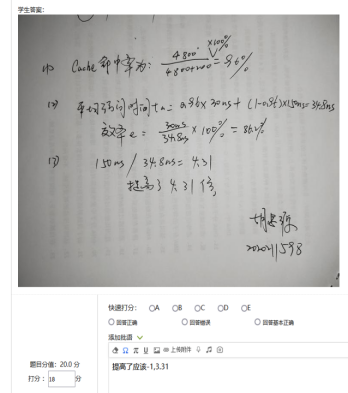 学生答案:
(1) Cache命中率为: 4800/(4800+200) ×100% = 96%
(2) 平均访问时间ta = 0.96×30ns + (1-0.96)×150ns = 34.8ns
效率e = 30ns/34.8ns × 100% = 86.2%
(3) 150ns / 34.8ns = 4.31
提高了4.31倍
快速打分: A B C D E
回答正确 回答错误 回答基本正确
添加批语
上传附件
题目分值: 20.0 分
提高了应该-1,3.31
打分: 18 分